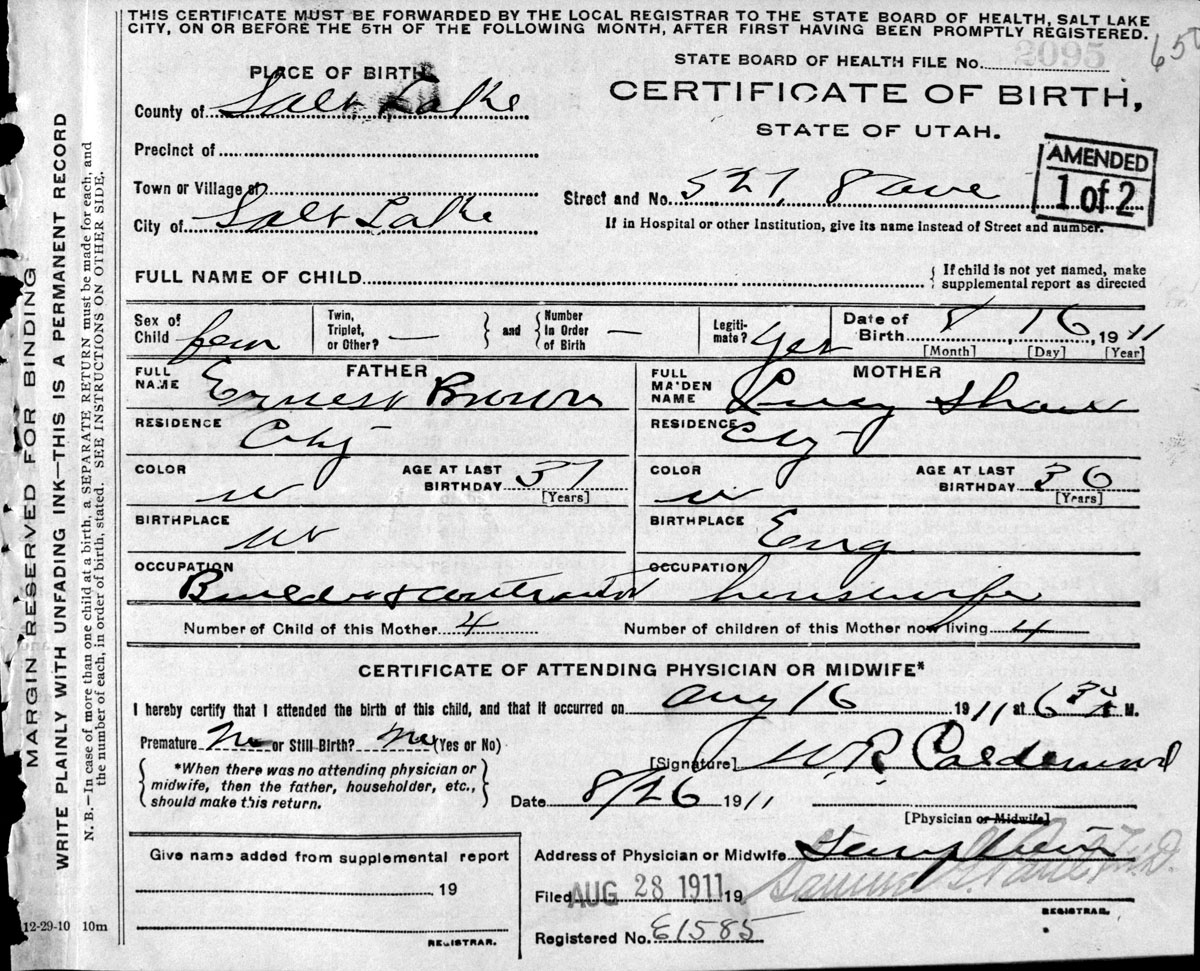 THIS CERTIFICATE MUST BE FORWARDED BY THE LOCAL REGISTRAR TO THE STATE BOARD OF HEALTH, SALT LAKE
CITY, ON OR BEFORE THE 5TH OF THE FOLLOWING MONTH, AFTER FIRST HAVING BEEN PROMPTLY REGISTERED.
650
STATE BOARD OF HEALTH FILE No. 2095
CERTIFICATE OF BIRTH,
STATE OF UTAH.
AMENDED
1 of 2
PLACE OF BIRTH
County of Salt Lake
Precinct of
Town or Village of
City of Salt Lake
Street and No. 527 8 ave
If in Hospital or other Institution, give its name Instead of Street and number.
FULL NAME OF CHILD
{ If child is not yet named, make
supplemental report as directed
Sex of Child fem
Twin, Triplet, or Other? —
and
Number In Order of Birth —
Legiti-mate? Yes
Date of Birth 8 16, 1911
[Month] [Day] [Year]
FATHER
FULL NAME Ernest Brown
RESIDENCE City
COLOR w AGE AT LAST BIRTHDAY 37
[Years]
BIRTHPLACE Ut
OCCUPATION Builder & contractor
MOTHER
FULL MAIDEN NAME Lucy Shaw
RESIDENCE City
COLOR w AGE AT LAST BIRTHDAY 36
[Years]
BIRTHPLACE Eng
OCCUPATION housewife
Number of Child of this Mother 4 Number of children of this Mother now living 4
CERTIFICATE OF ATTENDING PHYSICIAN OR MIDWIFE*
I hereby certify that I attended the birth of this child, and that it occurred on Aug 16 1911 at 6 M.
Premature No or Still Birth? No (Yes or No)
*When there was no attending physician or
midwife, then the father, householder, etc.,
should make this return.
[Signature] W.R. Calderwood
Date 8/26 1911
[Physician or Midwife]
Give name added from supplemental report
19
REGISTRAR.
Address of Physician or Midwife
Filed AUG 28 1911 19
REGISTRAR.
Registered No. E1585
MARGIN RESERVED FOR BINDING
WRITE PLAINLY WITH UNFADING INK—THIS IS A PERMANENT RECORD
N. B.—In case of more than one child at a birth, a SEPARATE RETURN must be made for each, and
the number of each, in order of birth, stated. SEE INSTRUCTIONS ON OTHER SIDE.
12-29-10 10m